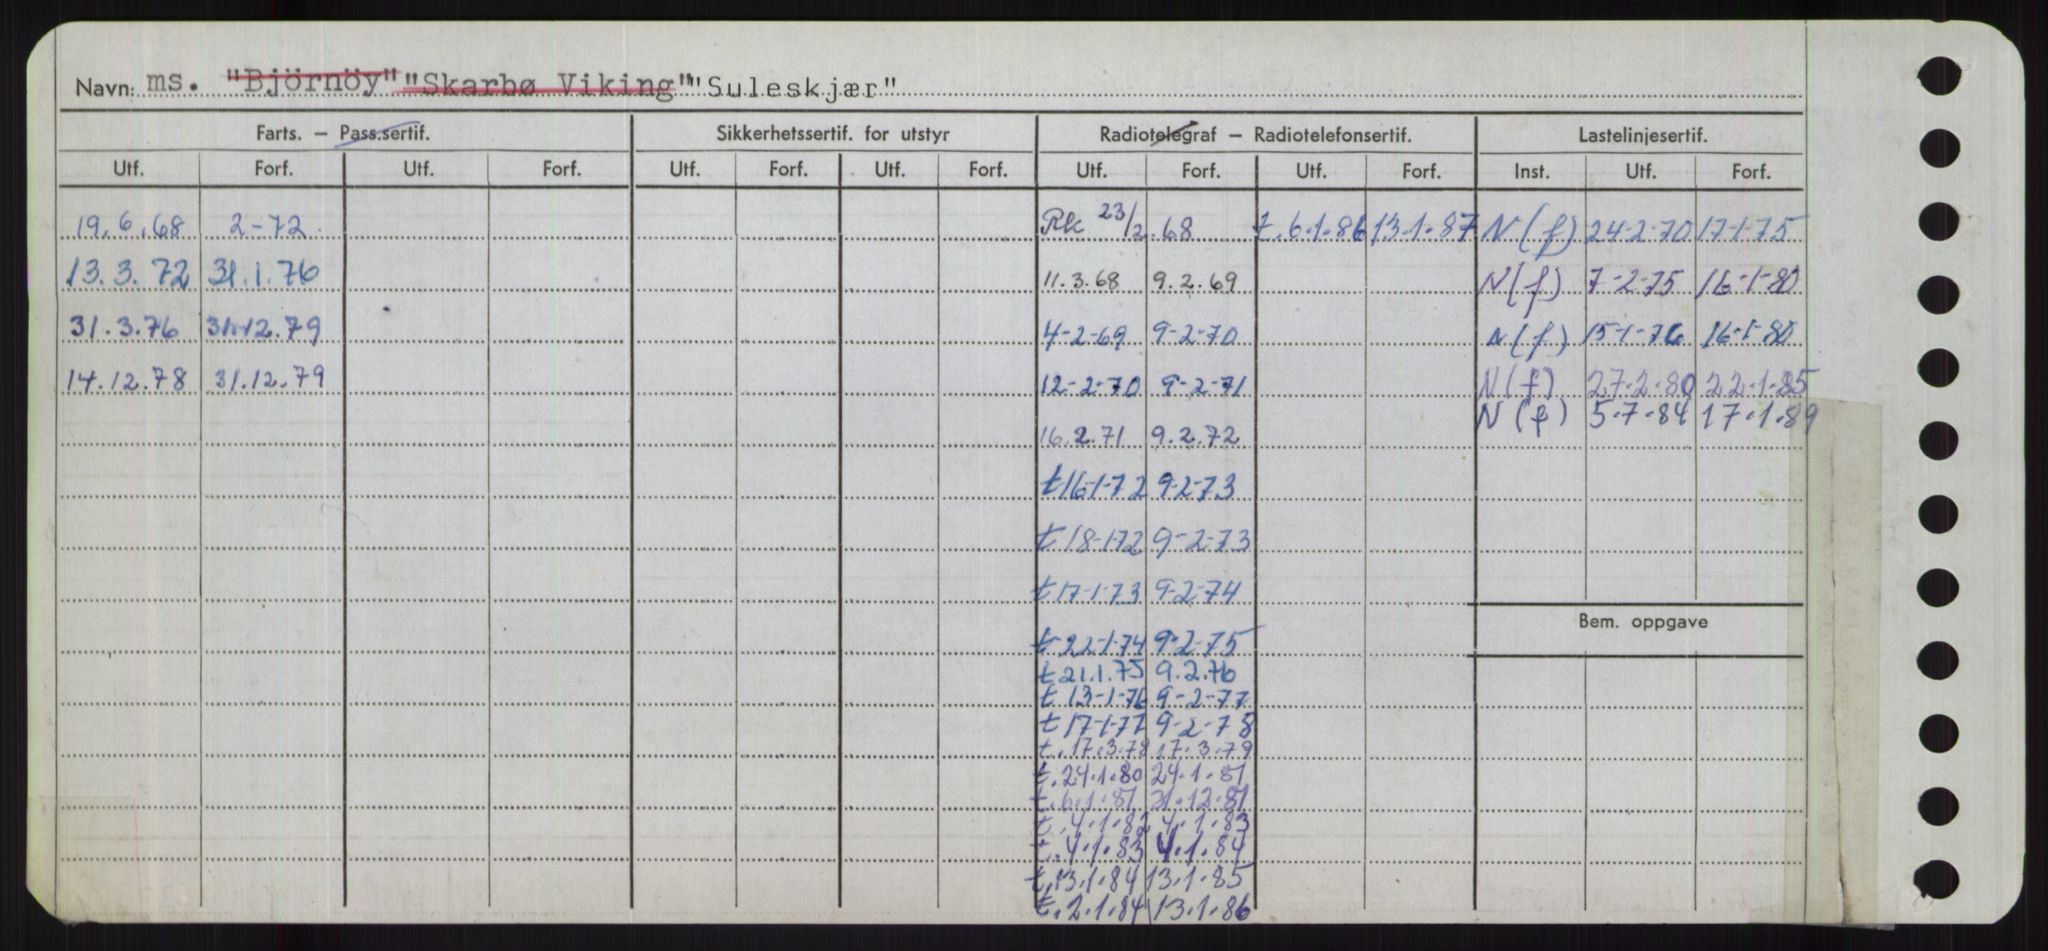 Navn: ms. "Björnöy" "Skarbø Viking" "Suleskjær"
Farts. — Pass.sertif. Sikkerhetssertif. for utstyr Radiotelegraf — Radiotelefonsertif. Lastelinjesertif.
Utf. Forf. Utf. Forf. Utf. Forf. Utf. Forf. Utf. Forf. Utf. Forf. Inst. Utf. Forf.
19.6.68 2-72 Rk 23/2.68 t.6.1.86 13.1.87 N(f) 24-2-70 17-1-75
13.3.72 31.1.76 11.3.68 9.2.69 N(f) 7-2-75 16-1-80
31.3.76 31.12.79 4-2-69 9-2-70 N(f) 15-1-76 16-1-80
14.12.78 31.12.79 12-2-70 9-2-71 N(f) 27-2-80 22.1.85
N(f) 5.7.84 17.1.89
16.2.71 9.2.72
t 16-1-72 9-2-73
t 18-1-72 9-2-73
t 17-1-73 9-2-74
Bem. oppgave
t 22-1-74 9-2-75
t 21.1.75 9.2.76
t 13-1-76 9-2-77
t 17-1-77 9-2-78
t.17.3.78 17.3.79
t.24.1.80 24.1.81
t.6.1.81 31.12.81
t.4.1.82 4.1.83
t.4.1.83 4.1.84
t.13.1.84 13.1.85
t.2.1.84 13.1.86